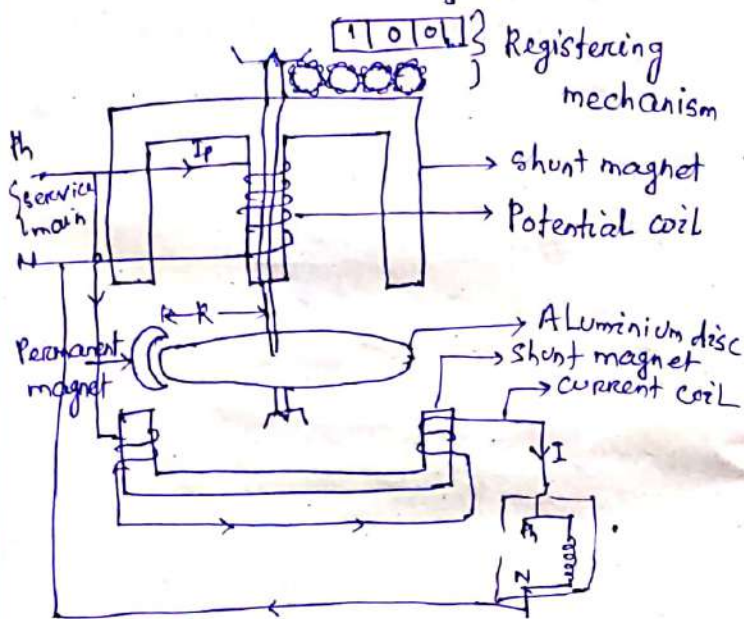 1 0 0
Registering
mechanism
Ph
Ip
service
main
N
shunt magnet
Potential coil
R
Permanent
magnet
ALuminium disc
shunt magnet
current coil
I
Ph
N